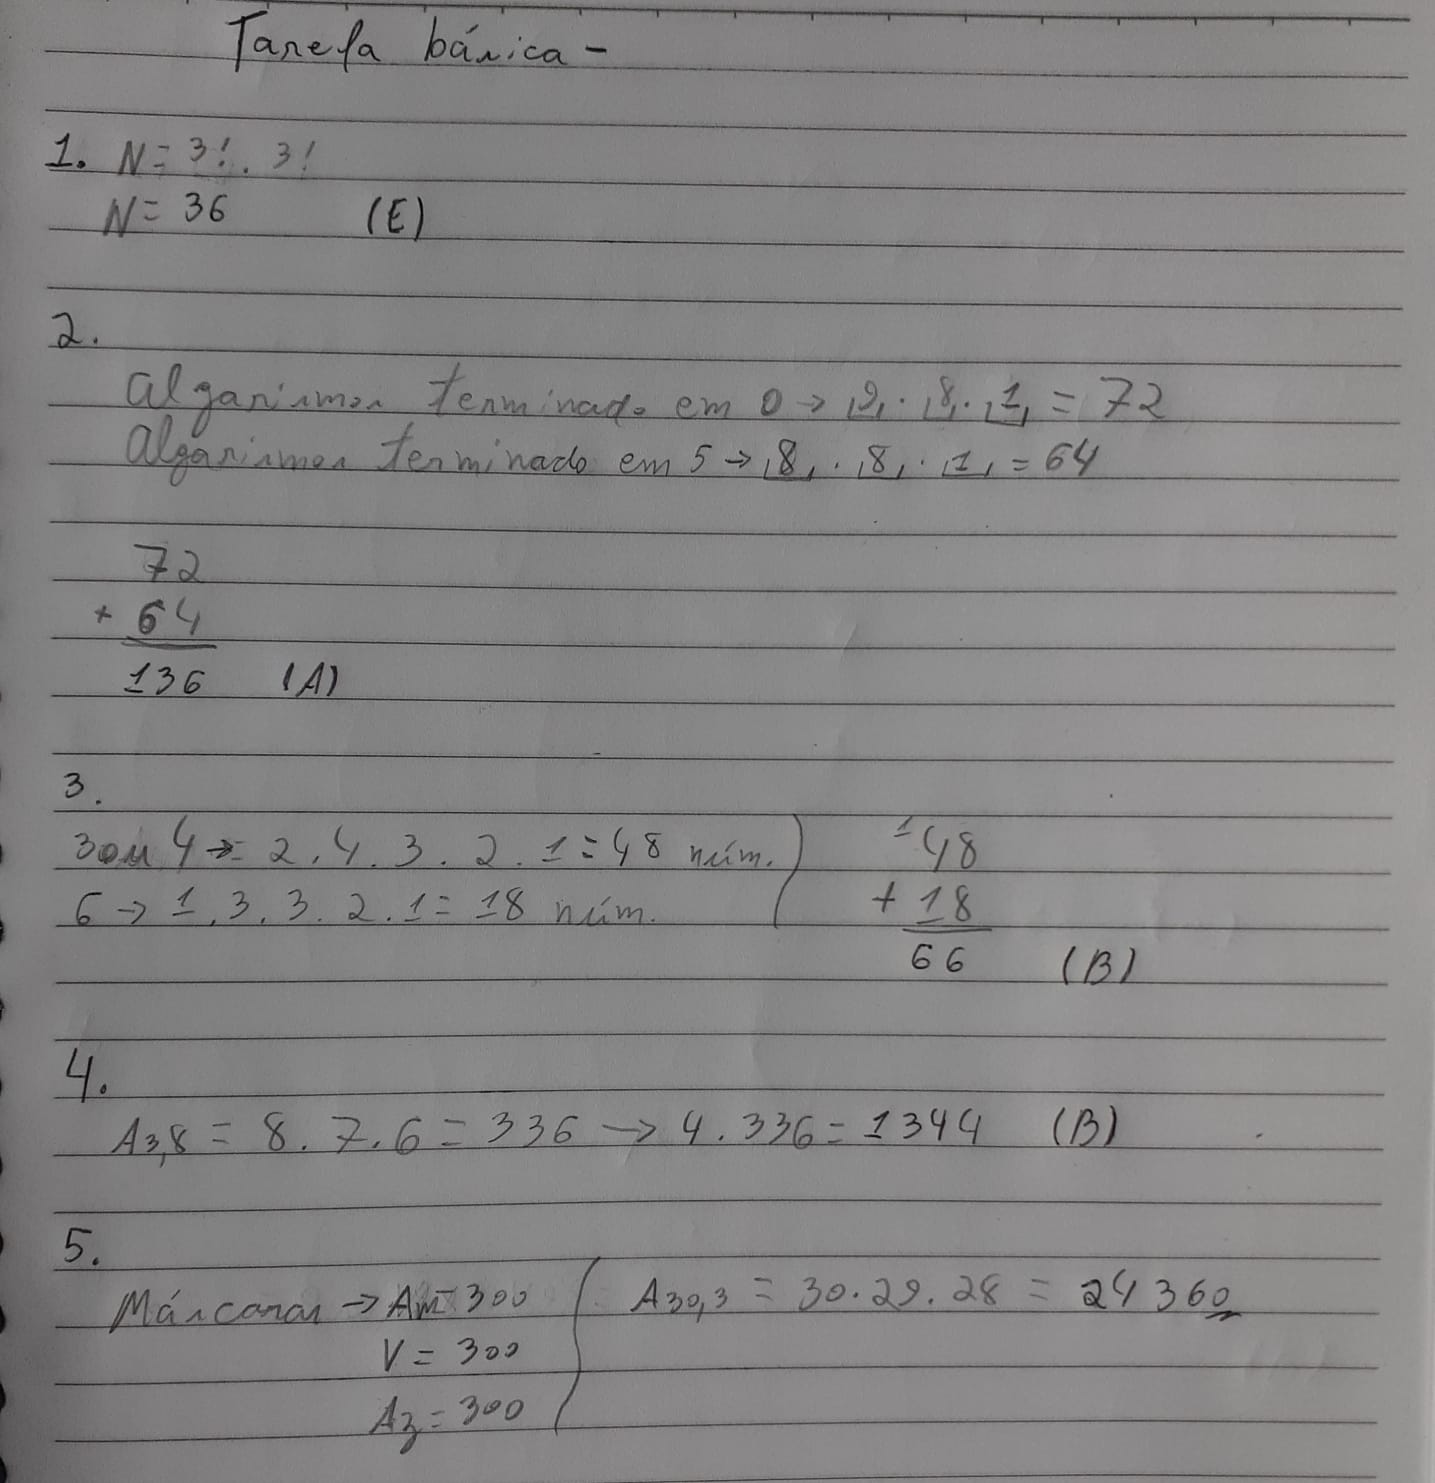 Tarefa básica -
1. N = 3! . 3!
N = 36 (E)
2.
algarismos terminado em 0 → 9 . 8 . 1 = 72
Algarismos terminado em 5 → 8 . 8 . 1 = 64
72
+ 64
136 (A)
3.
3 ou 4 → 2 . 4 . 3 . 2 . 1 = 48 núm.
6 → 1 . 3 . 3 . 2 . 1 = 18 núm.
1 48
+ 18
66 (B)
4.
A3,8 = 8 . 7 . 6 = 336 → 4 . 336 = 1344 (B)
5.
Máscaras → Am = 300
V = 300
Az = 300
A30,3 = 30 . 29 . 28 = 24360